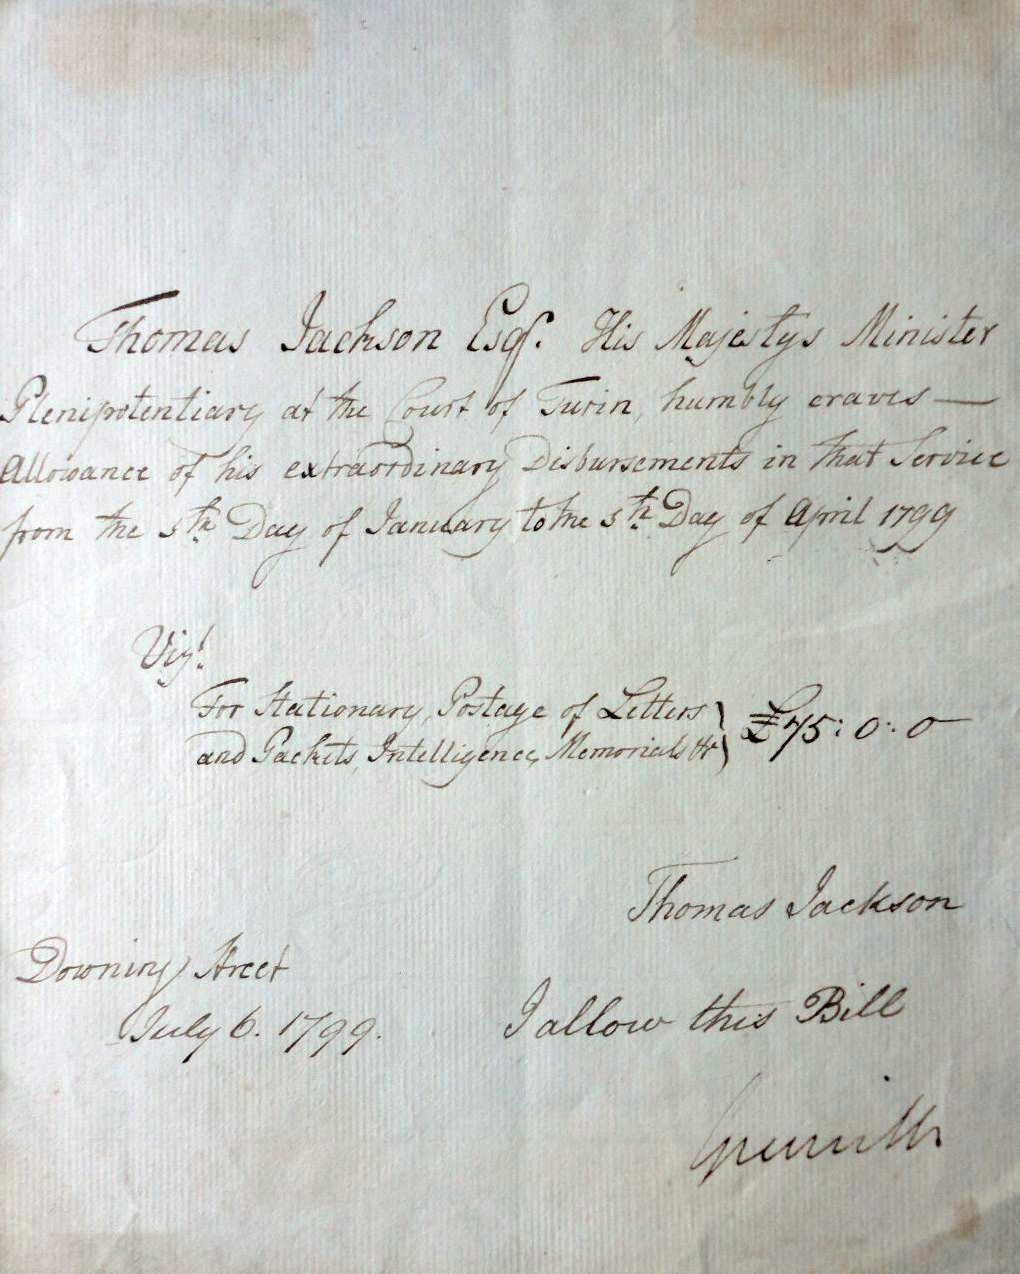 Thomas Jackson Esqr. His Majestys Minister
Plenipotentiary at the Court of Turin, humbly craves —
Allowance of his extraordinary Disbursements in that Service
from the 5th Day of January to the 5th Day of April 1799
Vizt.
For Stationary, Postage of Letters
and Packets, Intelligence, Memorials &c } £75: 0: 0
Thomas Jackson
Downing Street
July 6. 1799.
I allow this Bill
Grenville